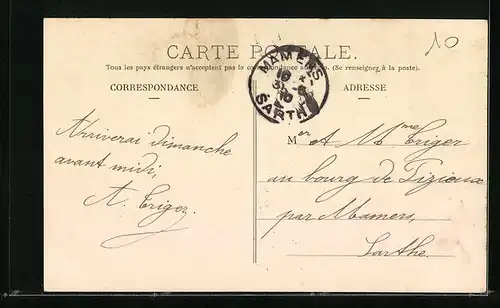 10
CARTE POSTALE.
Tous les pays étrangers n'acceptent pas la correspondance au (Se renseigner à la poste).
CORRESPONDANCE
ADRESSE
MAMERS
10
SARTHE
Arriverai dimanche
avant midi,
A. Triger.
Mer et Mme Triger
au bourg de
par Mamers,
Sarthe.